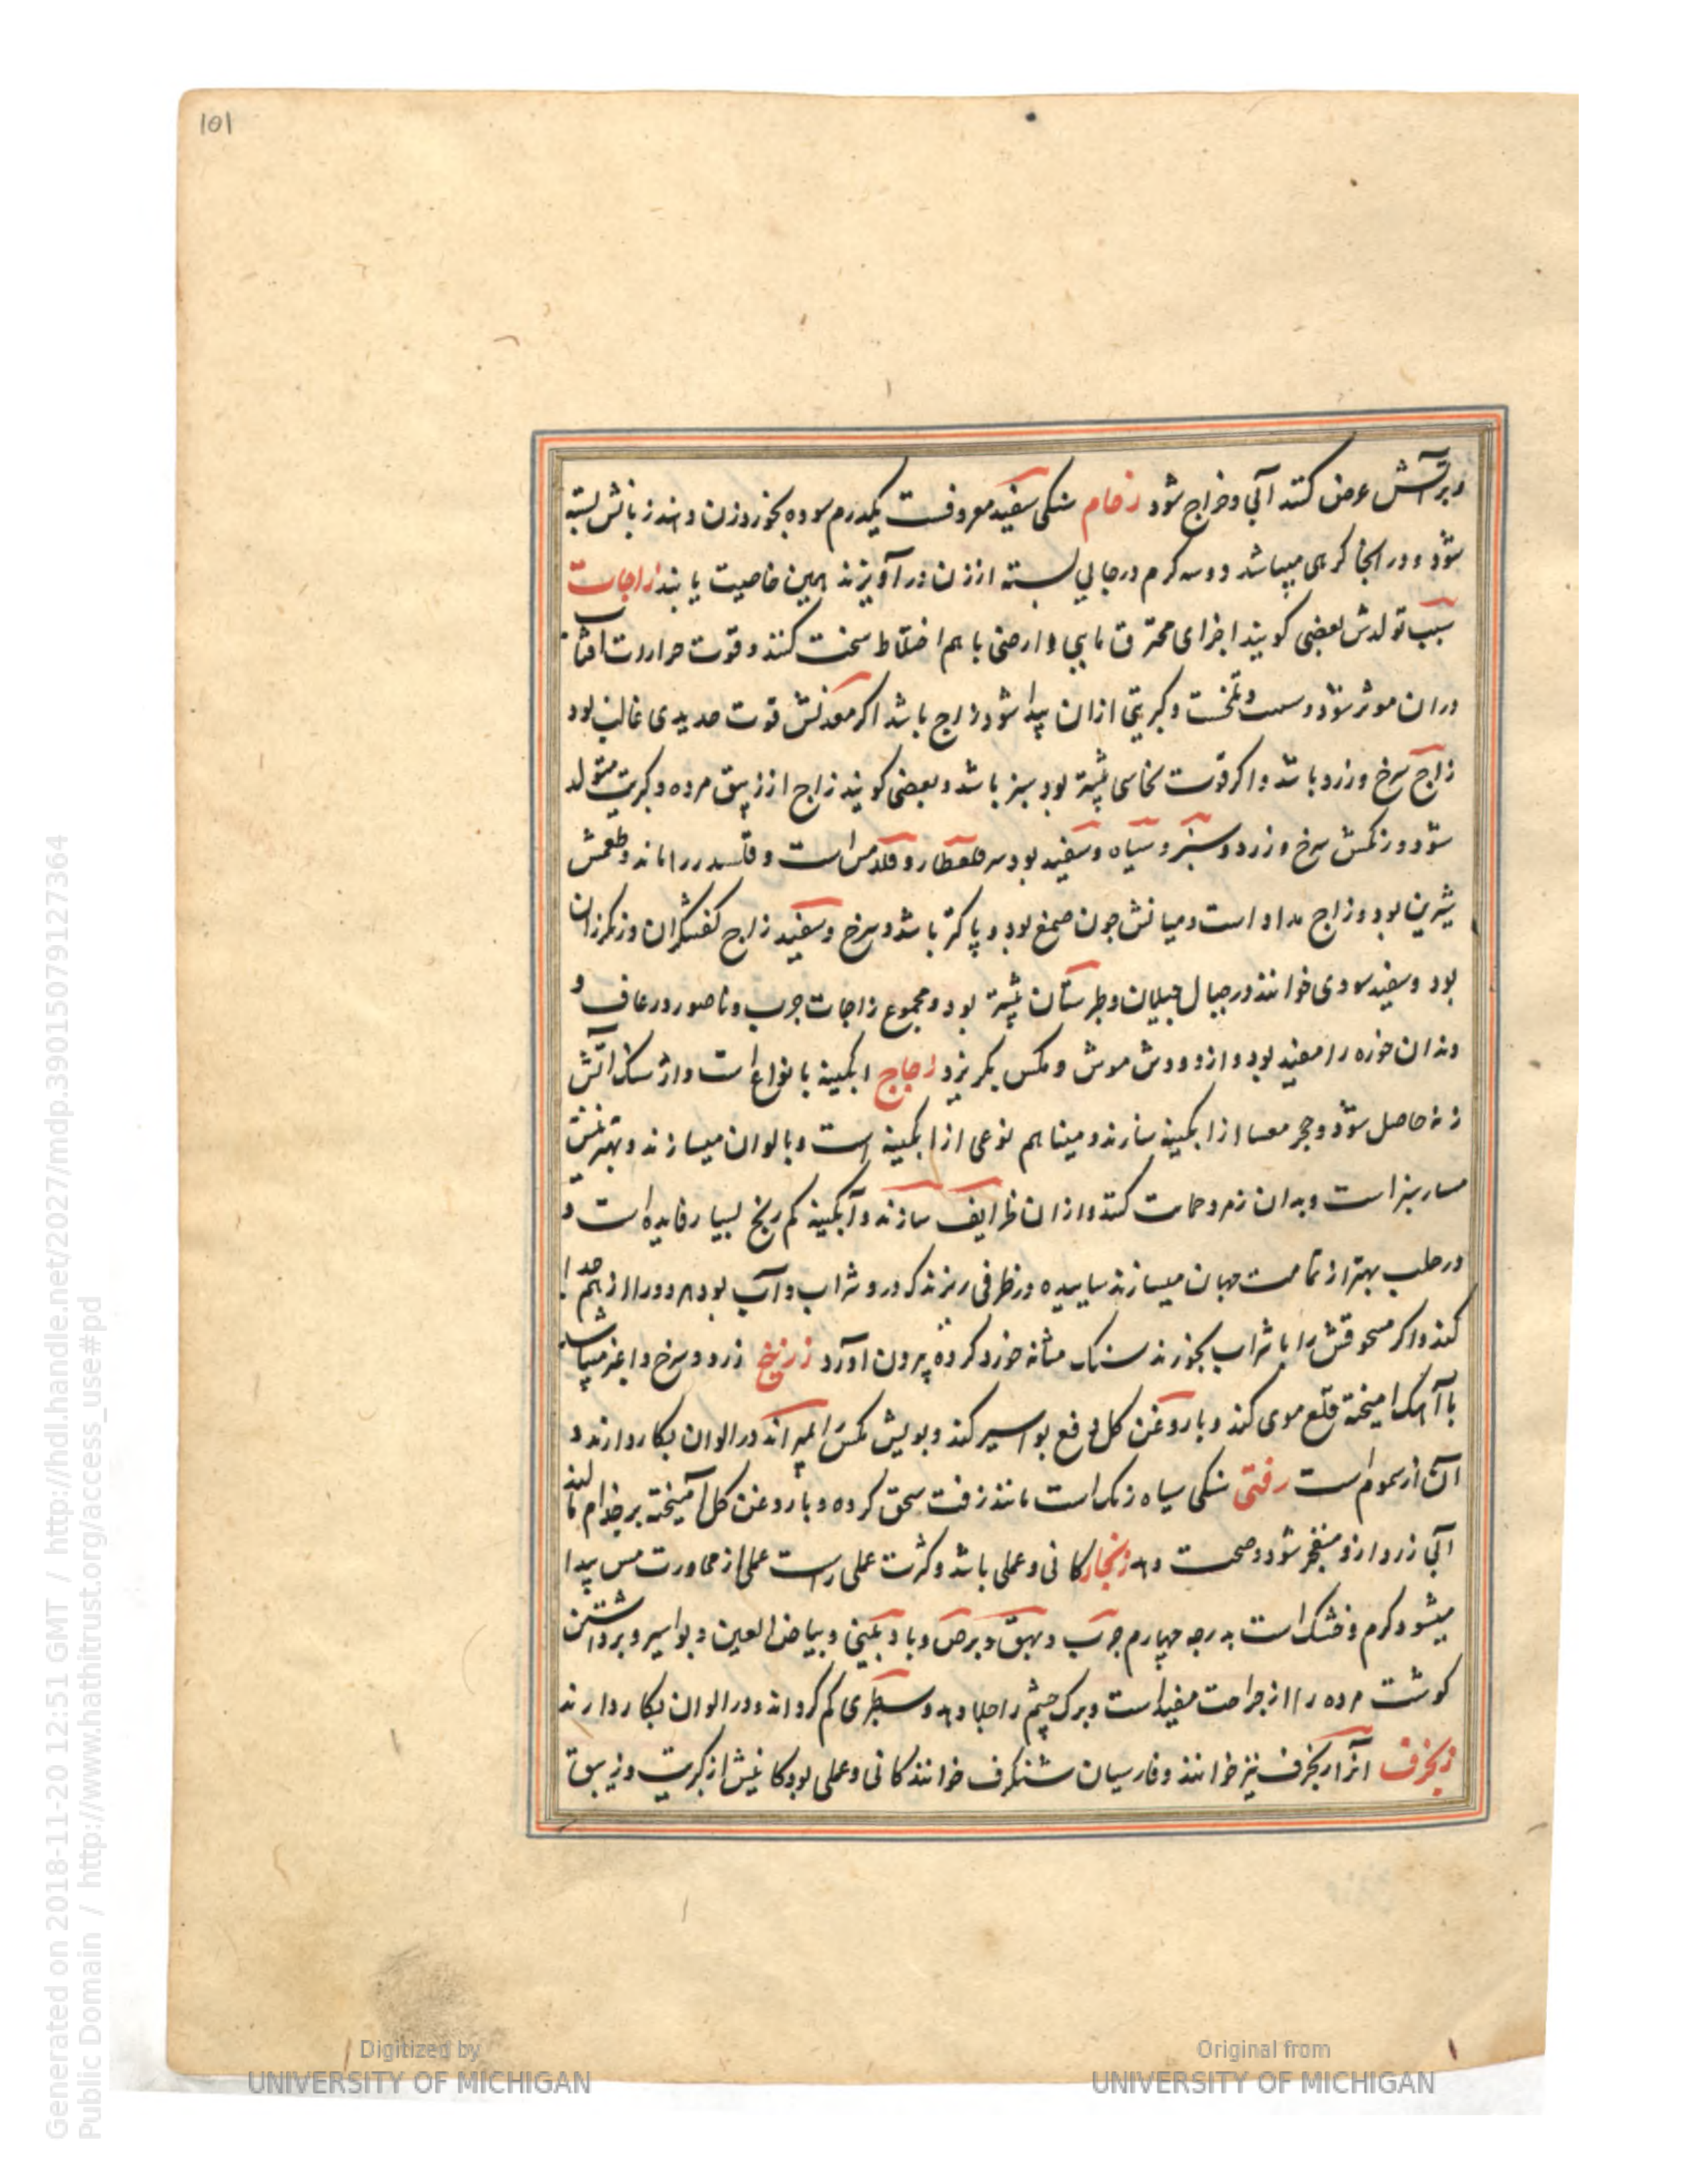 101
و بر آتش عرض کنند آبی و خراج شود زخام سنکی سفید معروفست یکدرم سوده بخورد زن دهند زبانش بسته
شود و در انجا کرمی میباشد دو سه کرم در جایی بسته از زن در آویزند همین خاصیت یابند زاجات
سبب تولدش بعضی کویند اجزای محترق مایی و ارضی با هم اختلاط سخت کنند و قوت حرارت افتاب
در ان موثر شود و کبریتی ازان پیدا شود زاج باشد اکر معدنش قوت حدیدی غالب بود
زاج سرخ و زرد باشد و اکر قوت نحاسی بیشتر بود سبز باشد و بعضی کویند زاج از زیبق مرده و کبریت متولد
شود و رنکش سرخ و زرد و سبز و سیاه و سفید بود قلقطار و است و را ماند و طعمش
شیرین بود و زاج مداد است و میانش جون صمغ بود و پاکتر باشد و سرخ و سفید زاج کفشکران و رنکرزان
بود و سفید سوری خوانند در جبال جیلان و طبرستان بیشتر بود و مجموع زاجات جرب و ناصور و رعاف و
دندان خوره را مفید بود و از دودش موش و مکس بکریزد زجاج ابکینه بانواع است و از سنک اتش
زنه حاصل شود و حجر از ابکینه سازند و مینا هم نوعی از ابکینه است و بالوان میسازند و بهترینش
سبز است و بدان زمرد کنند و ازان ظرایف سازند و آبکینه کم رنج بسیار فایده است و
در حلب بهتر از تمامت جهان میسازند ساییده در ظرفی ریزند که درو شراب و آب بود هر دو را از هم جدا
کند و اکر مسحوقش را با شراب بخورند سنک مثانه خورد کرده بیرون اورد زرنیخ زرد و سرخ و اغبر میباشد
با آهک امیخته قلع موی کند و با روغن کل دفع بواسیر کند و بویش مکس را میراند در الوان بکار دارند و
آن از سموم است زفتی سنکی سیاه رنک است مانند زفت سحق کرده و با روغن کل آمیخته بر خدام مالند
آبی زرد ازو منفجر شود و صحت دهد زنجار کانی و عملی باشد و کثرت عملی راست عملی از مجاورت مس پیدا
میشود کرم و خشک است بدرجه چهارم جرب و بهق و برص و باد بینی و بیاض العین و بواسیر و برداشتن
کوشت مرده را از جراحت مفید است و برک چشم را جلا دهد و سطبری کم کرداند و در الوان بکار دارند
زنجرف انرا زنجرف نیز خوانند و فارسیان شنکرف خوانند کانی و عملی بود کانیش از کبریت و زیبق
Generated on 2018-11-20 12:51 GMT / http://hdl.handle.net/2027/mdp.39015079127364
Public Domain / http://www.hathitrust.org/access_use#pd
Digitized by
UNIVERSITY OF MICHIGAN
Original from
UNIVERSITY OF MICHIGAN